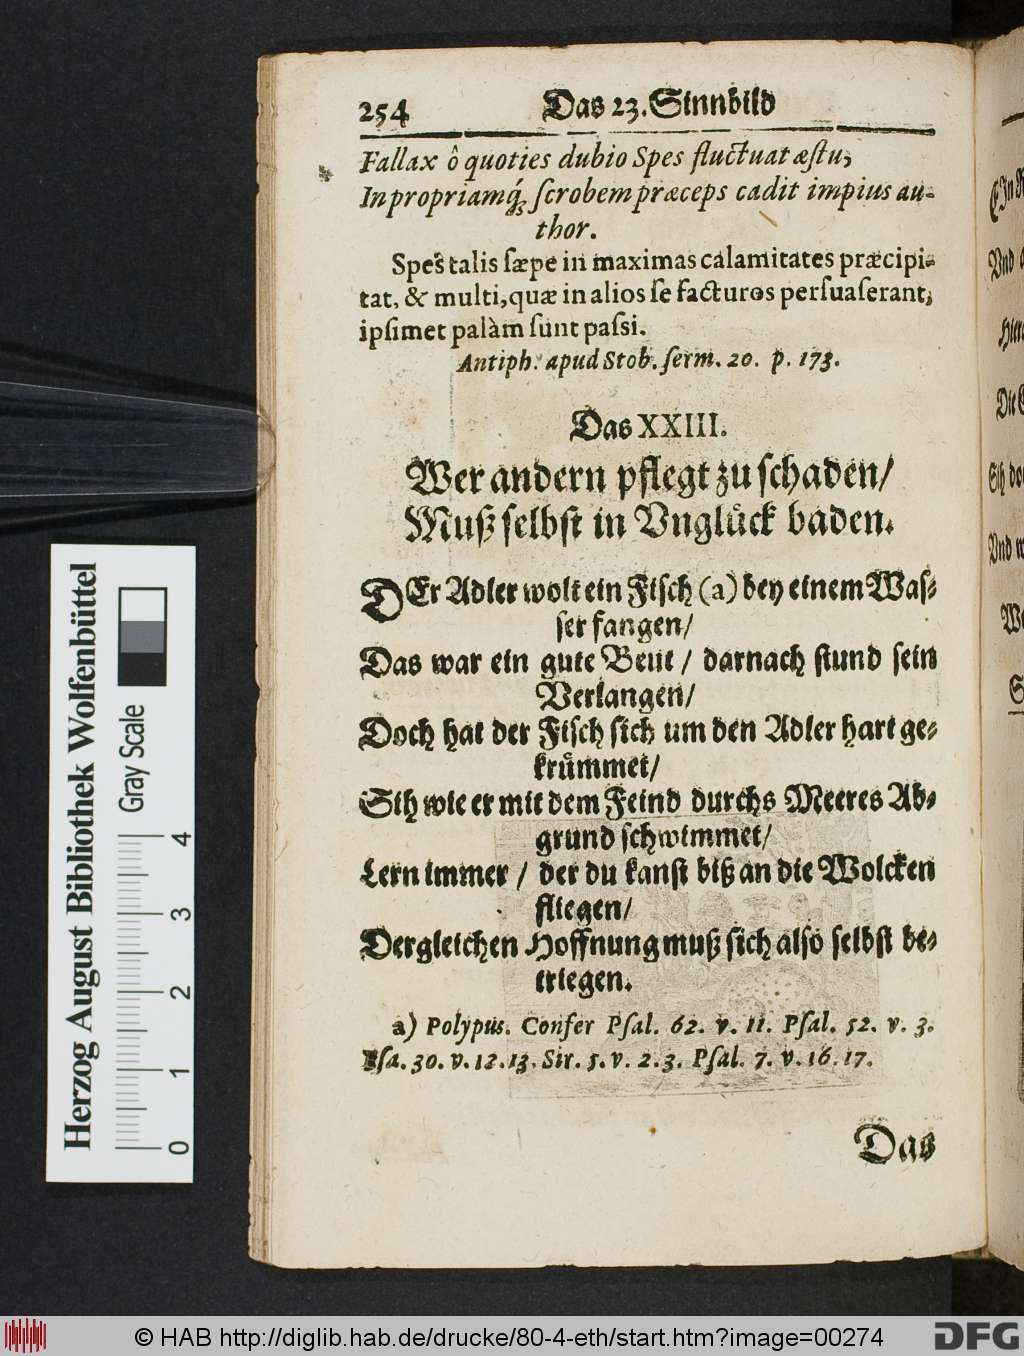 254 Das 23. Sinnbild
Fallax ô quoties dubio Spes fluctuat æstu,
In propriamq́; scrobem præceps cadit impius au-
thor.
Spes talis sæpe in maximas calamitates præcipi-
tat, & multi, quæ in alios se facturos persuaserant,
ipsimet palàm sunt passi.
Antiph. apud Stob. serm. 20. p. 173.
Das XXIII.
Wer andern pflegt zu schaden/
Muß selbst in Vnglůck baden.
DEr Adler wolt ein Fisch (a) bey einem Was-
ser fangen/
Das war ein gute Beut / darnach stund sein
Verlangen/
Doch hat der Fisch sich um den Adler hart ge-
krům̃et/
Sih wie er mit dem Feind durchs Meeres Ab-
grund schwimmet/
Lern immer / der du kanst biß an die Wolcken
fliegen/
Dergleichen Hoffnung muß sich also selbst be-
triegen.
a) Polypus. Confer Psal. 62. v. 11. Psal. 52. v. 3.
Esa. 30. v. 12. 13. Sir. 5. v. 2. 3. Psal. 7. v. 16. 17.
Das
Herzog August Bibliothek Wolfenbüttel
Gray Scale
0 1 2 3 4
© HAB http://diglib.hab.de/drucke/80-4-eth/start.htm?image=00274
DFG